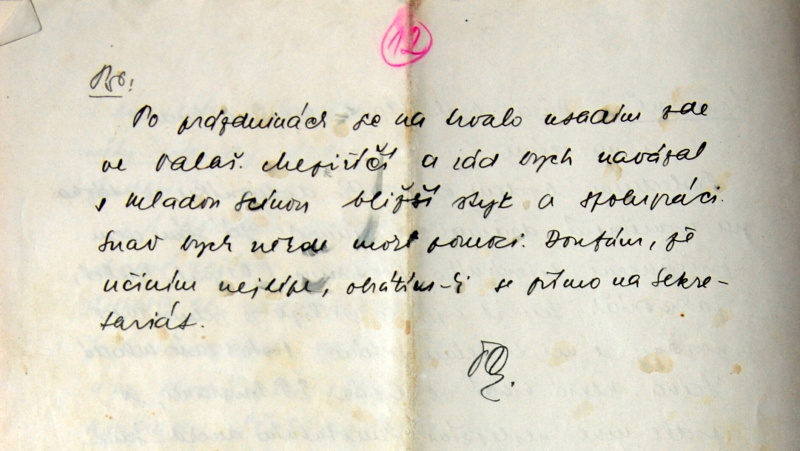 12
PS.!
Po prázdninách se na trvalo usadím zde
ve Valaš. Meziříčí a rád bych navázal
s Mladou scénou bližší styk a spolupráci.
Snad bych někde mohl pomoci. Doufám, že
učiním nejlépe, obrátím-li se přímo na sekre-
tariát.